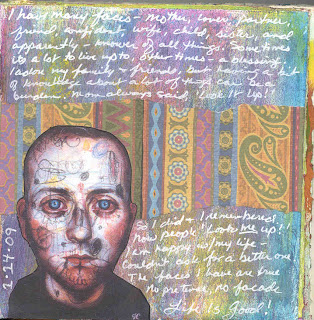 I have many faces - mother, lover, partner,
friend, confidant, wife, child, sister, and
apparently - knower of all things. Sometimes
its a lot to live up to, other times - a blessing.
I adore my family & friends, but having a bit
of knowledge about a lot of things can be a
burden. Mom always said, "Look it Up!!"
So I did & I remembered.
Now people "Look me up"!!
I am happy w/my life -
Couldn't ask for a better one.
The faces I have are true
No pretend, no facade
Life is Good!
1.24.09